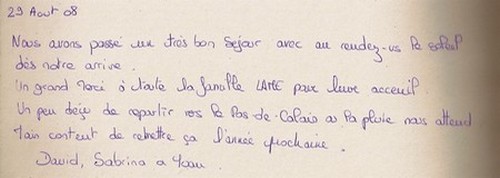 29 Aout 08
Nous avons passé un très bon séjour avec au rendez-vs le soleil
dès notre arrivé.
Un grand merci à toute la famille LAME pour leur acceuil.
Un peu déçu de repartir vers le Pas-de-Calais où la pluie nous attend
content de remettre ça l'année prochaine.
David, Sabrina